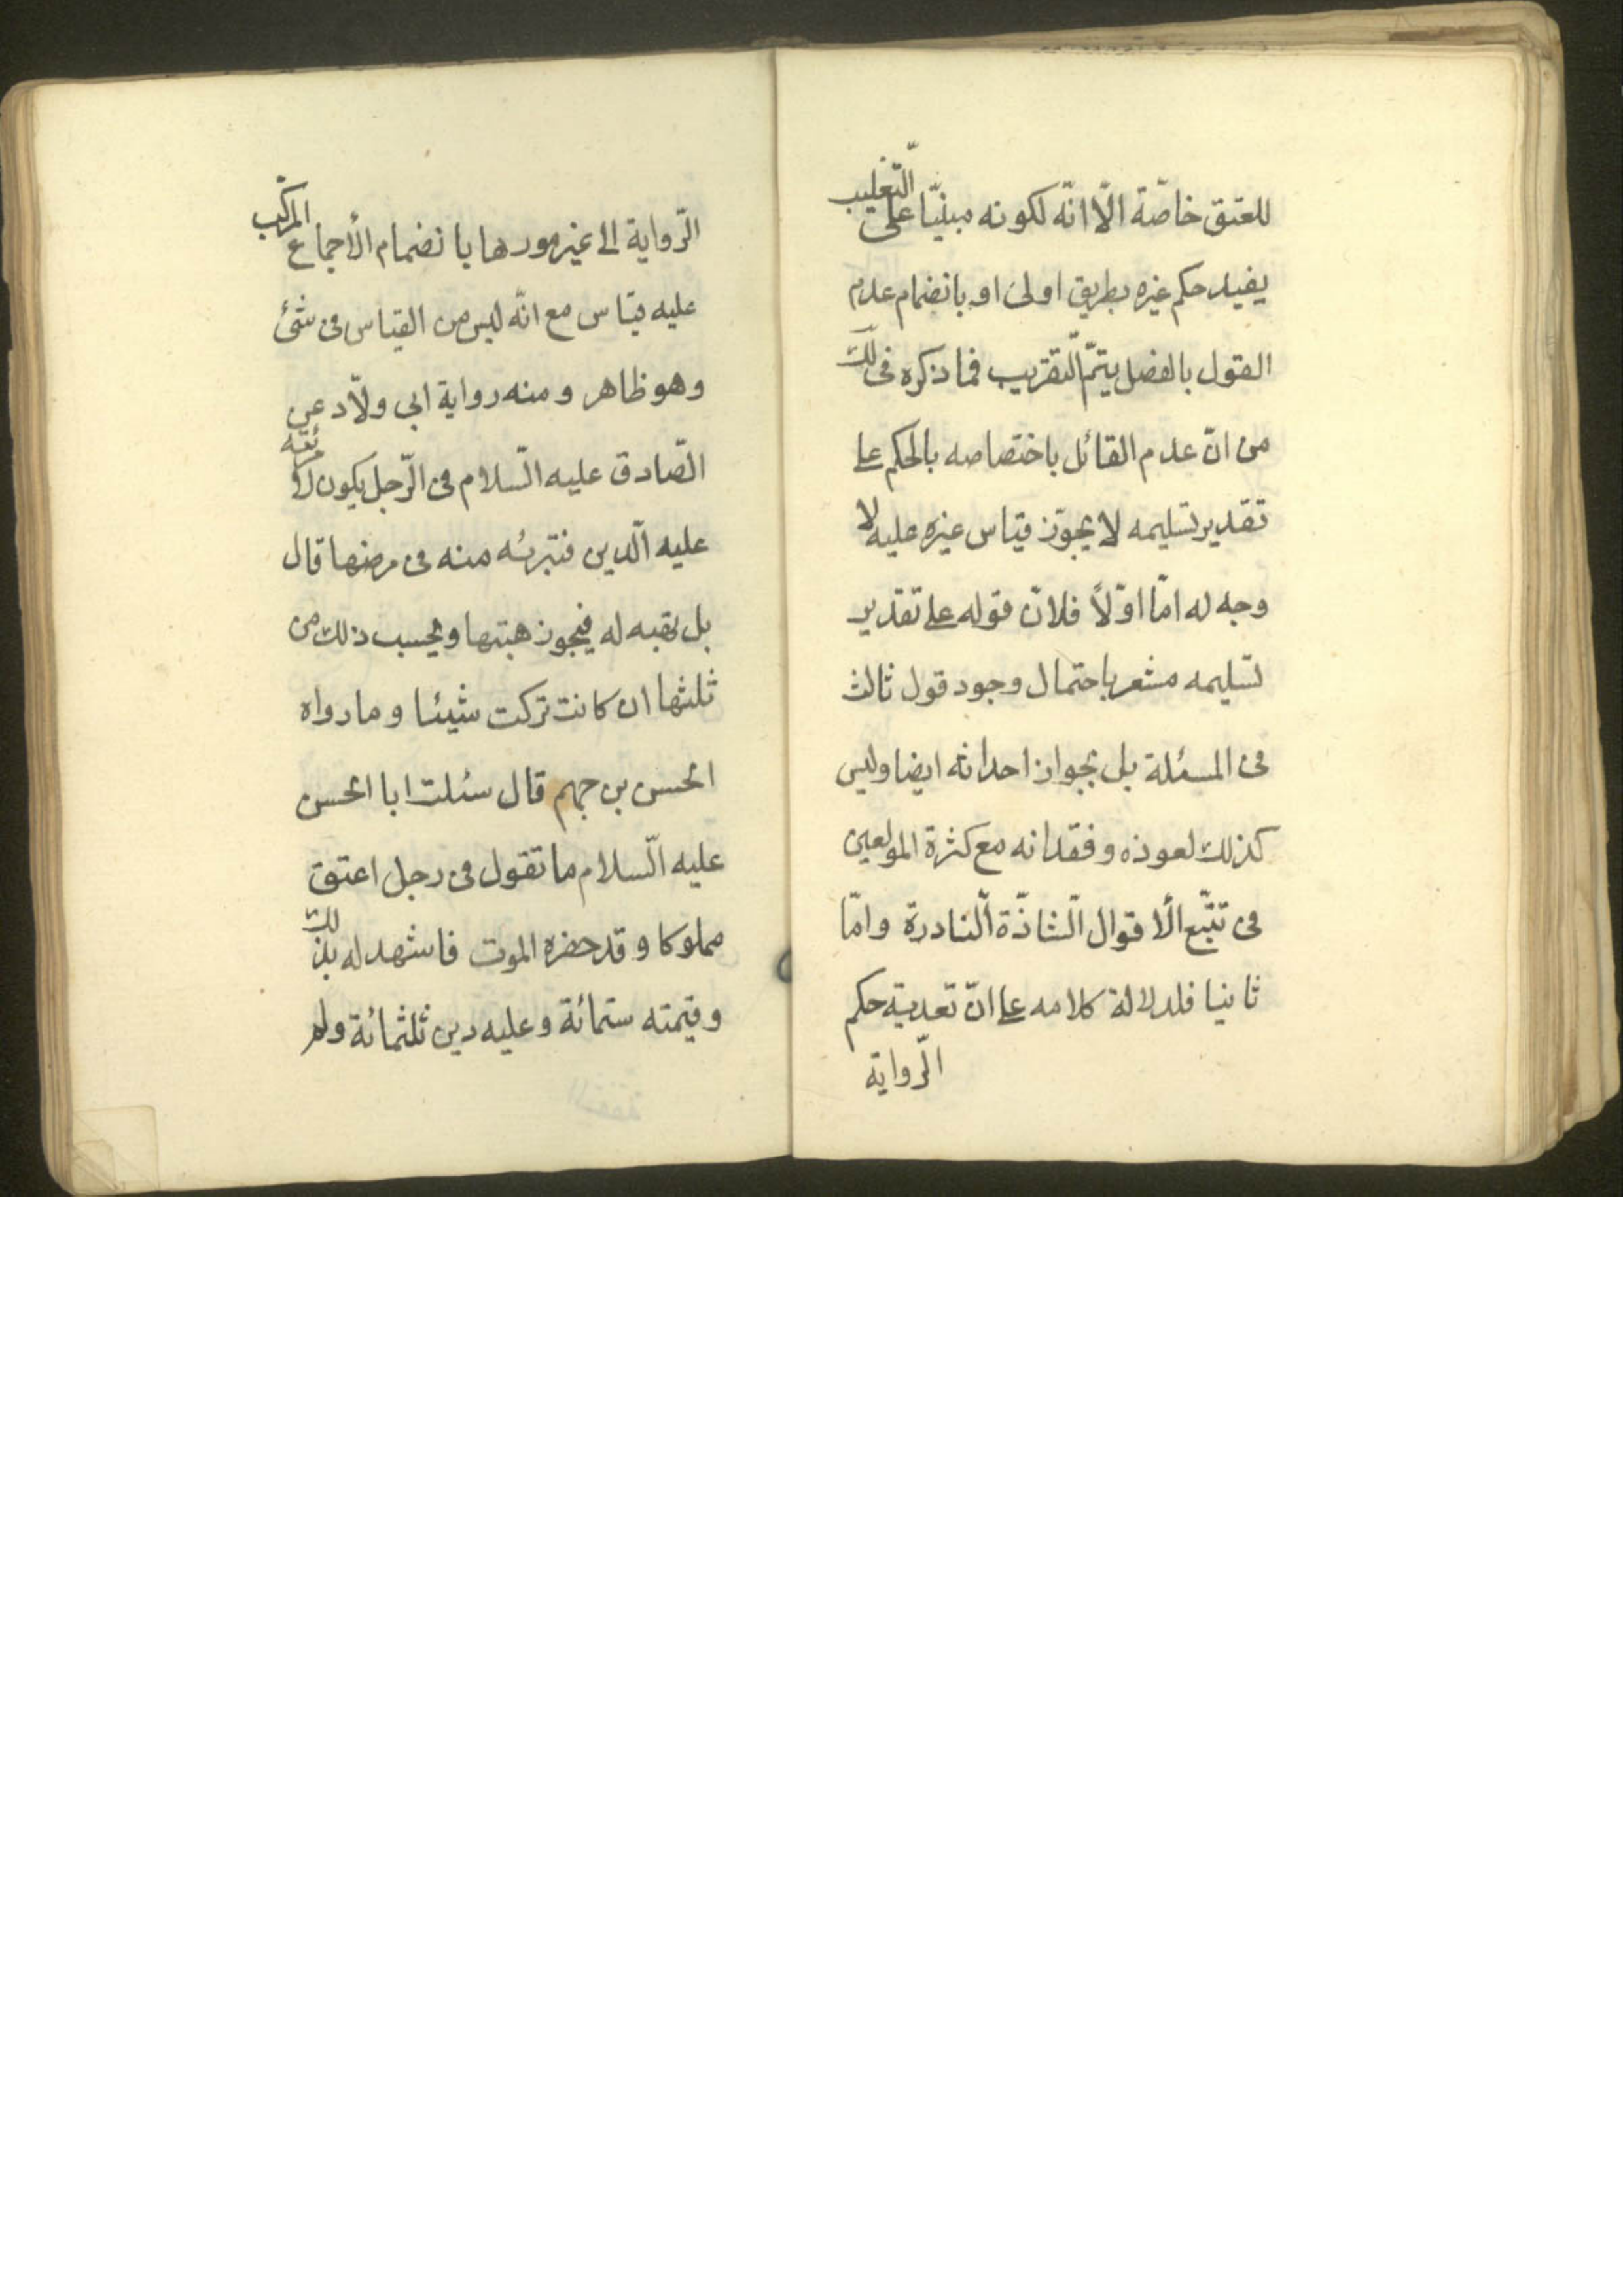 للعتق خاصّة الّا انّه لكونه مبنيّا على التّغليب
يفيد حكم غيره بطريق اولى او بانضمام عدم
القول بالفصل يتمّ التّقريب فما ذكره فى لك
من انّ عدم القائل باختصاصه بالحكم على
تقدير تسليمه لا يجوّز قياس غيره عليه لا
وجه له امّا اوّلاً فلانّ قوله على تقدير
تسليمه مشعر باحتمال وجود قول ثالث
فى المسئلة بل بجواز احداثه ايضا وليس
كذلك لعوذه وفقدانه مع كثرة المولعين
فى تتبّع الأقوال الشّاذّة النّادرة وامّا
ثانيا فلدلالة كلامه على انّ تعدية حكم
الرّواية
الرّواية الى غير موردها بانضمام الأجماع المركّب
عليه قياس مع انّه ليس من القياس فى شئ
وهو ظاهر ومنه رواية ابى ولّاد عن
الصّادق عليه السّلام فى الرّجل يكون لامرئته
عليه الّدين فتبرئه منه فى مرضها قال
بل تهبه له فيجوز هبتها ويحسب ذلك من
ثلثها ان كانت تركت شيئا وما رواه
الحسن بن جهم قال سئلت ابا الحسن
عليه السّلام ما تقول فى رجل اعتق
مملوكا وقد حضره الموت فاشهد له بذلك
وقيمته ستمائة وعليه دين ثلثمائة ولم